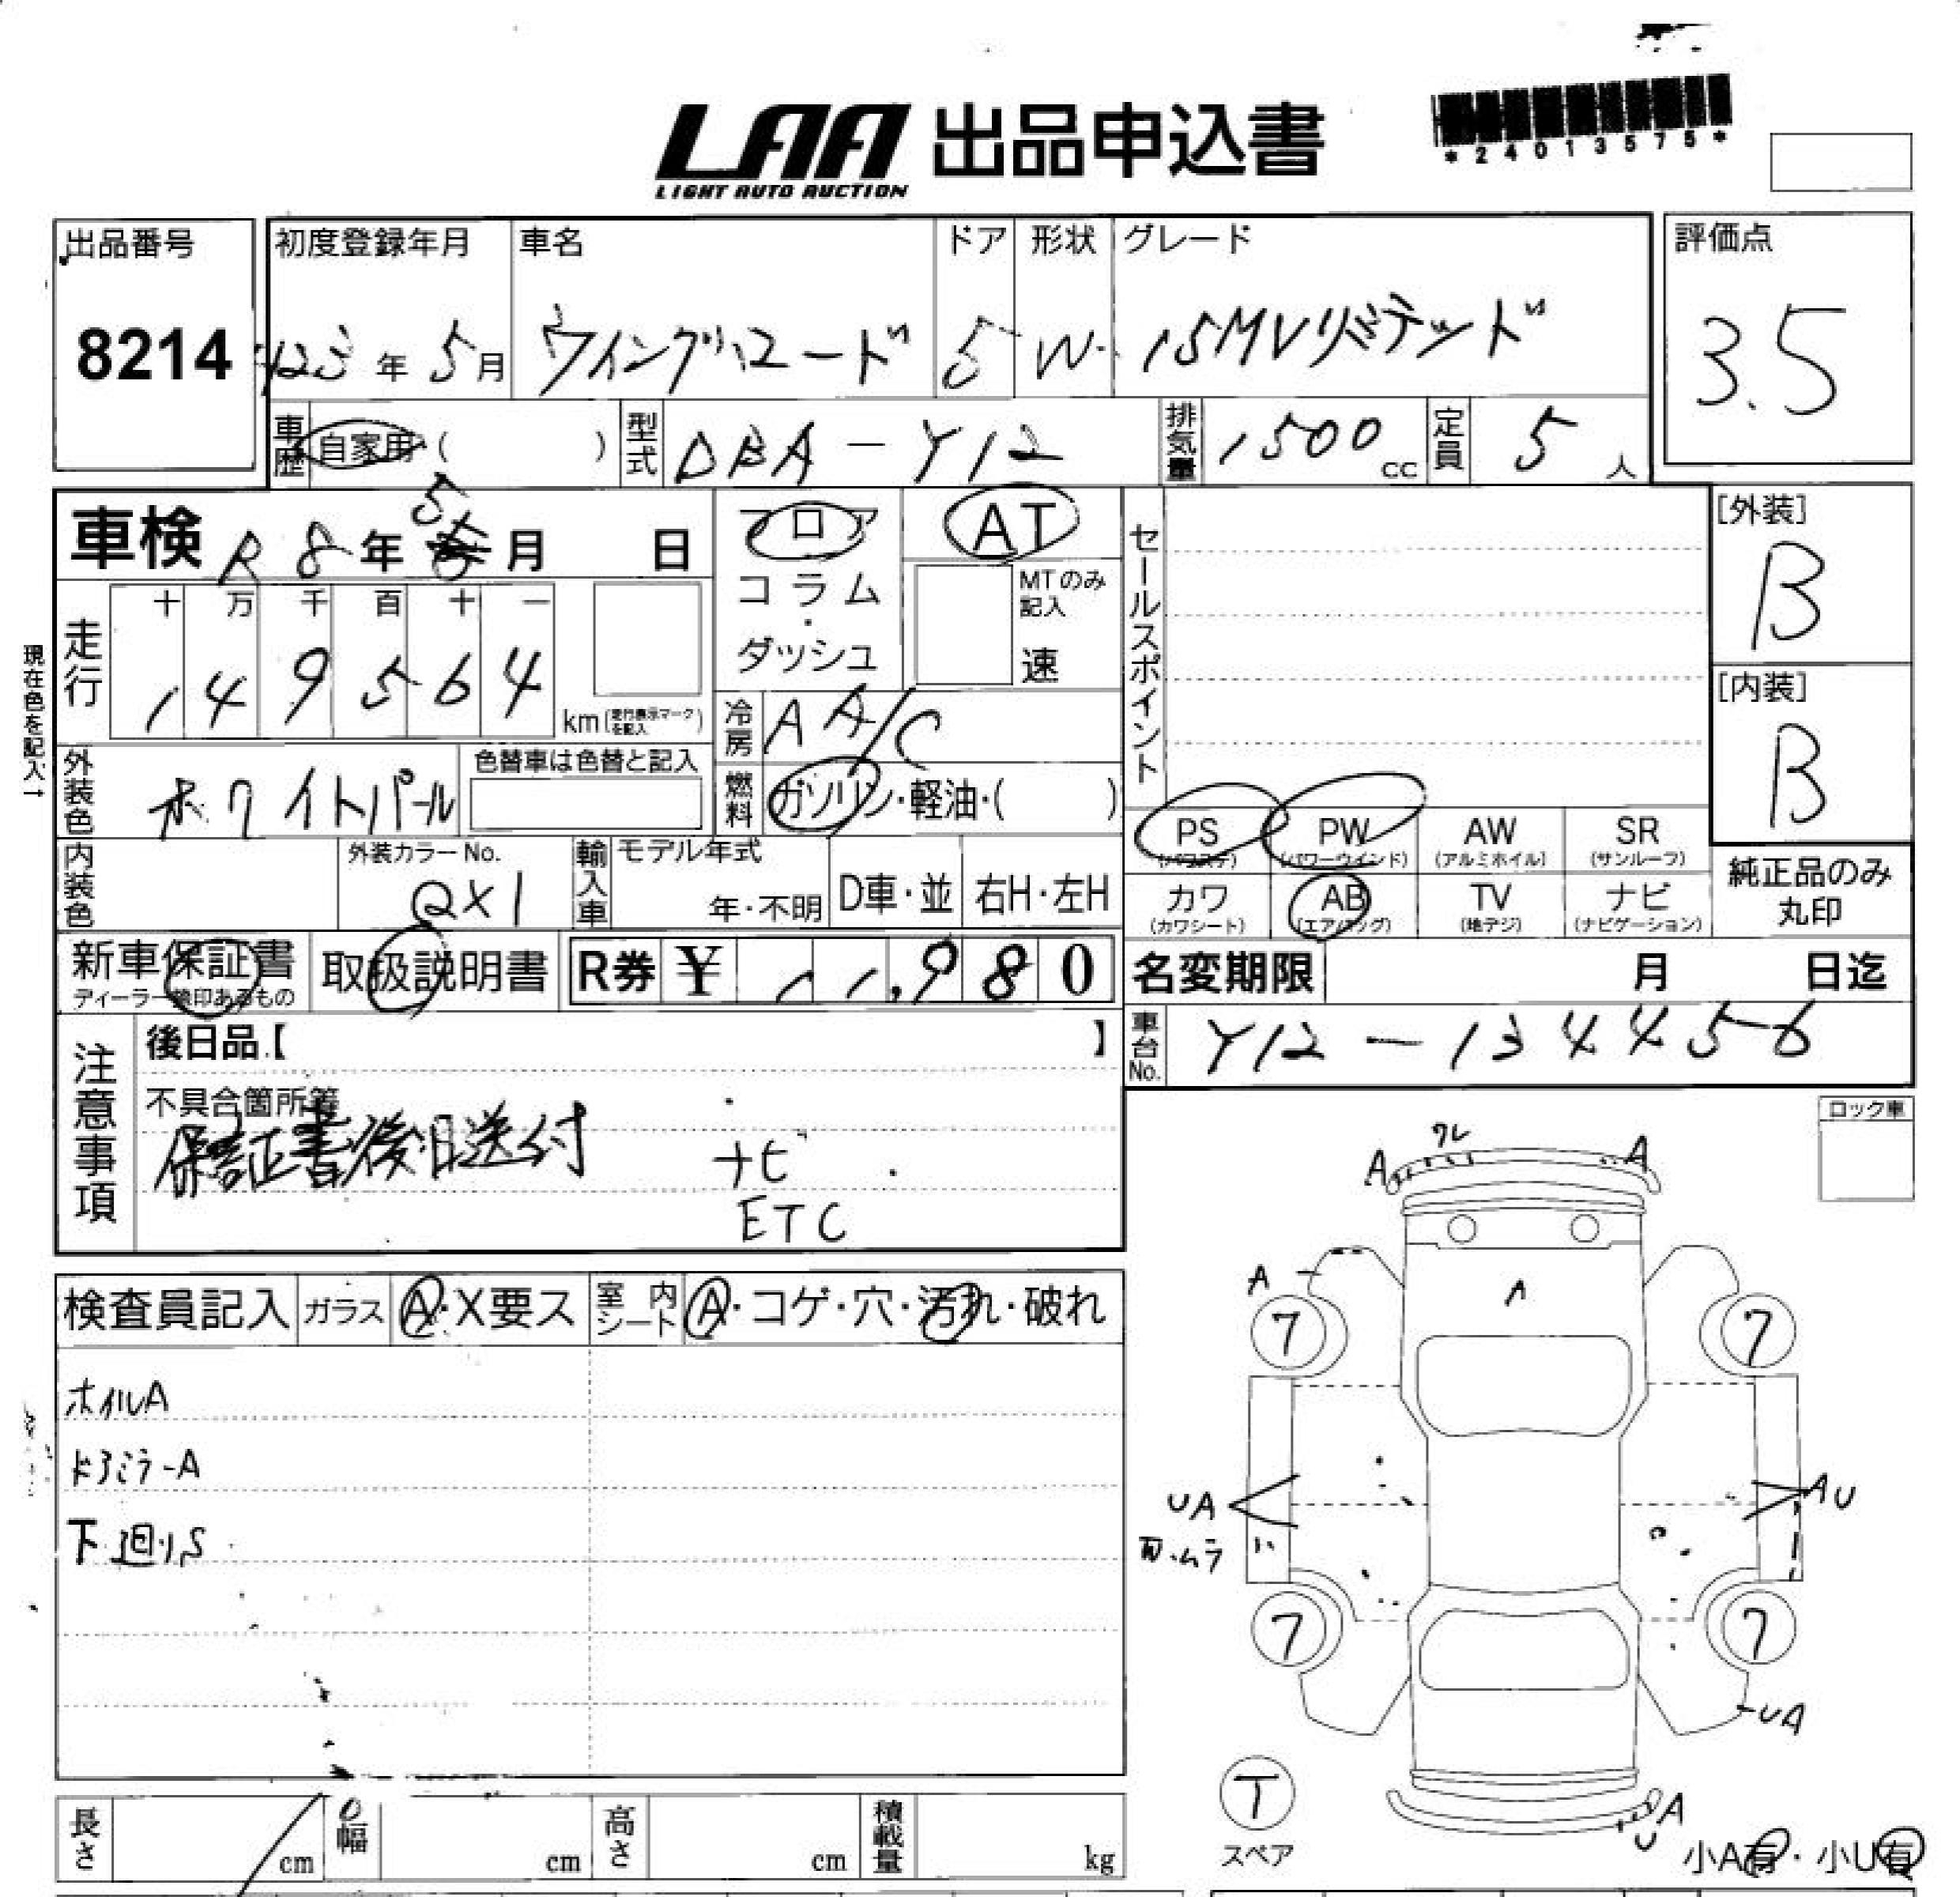 LAA 出品申込書
LIGHT AUTO AUCTION
*24013575*
出品番号 初度登録年月 車名 ドア 形状 グレード 評価点
8214 H23年 5月 ウイングロード 5 W 15MVリミテッド 3.5
車歴 自家用 ( ) 型式 DBA-Y12 排気量 1500cc 定員 5人
車検 R8年 5月 日 フロア AT セールスポイント [外装]
コラム・ダッシュ MTのみ記入 速 B
走行 十 万 千 百 十 一
1 4 9 5 6 4 km (走行表示マークを記入)
現在色を記入→
冷房 AA/C [内装]
外装色 ホワイトパール 色替車は色替と記入 燃料 ガソリン・軽油・( ) B
PS (パワステ) PW (パワーウインド) AW (アルミホイル) SR (サンルーフ)
内装色 外装カラーNo. QX1 輸入車 モデル年式 年・不明 D車・並 右H・左H
カワ (カワシート) AB (エアバッグ) TV (地デジ) ナビ (ナビゲーション) 純正品のみ丸印
新車保証書 取扱説明書 R券 ¥ 11,980 名変期限 月 日迄
ディーラー捺印あるもの
車台No. Y12-134456
注意事項 後日品【 】
不具合箇所等
保証書後日送付 ナビ
ETC
ロック車
検査員記入 ガラス A・X要ス 室内シート A・コゲ・穴・汚れ・破れ
ホイルA
ドアミラーA
下廻りS
ワレ
A A
A A
7 7
UA AU
ムラ
7 7
UA
T
スペア
A
U
小A有・小U有
長さ cm 幅 cm 高さ cm 積載量 kg